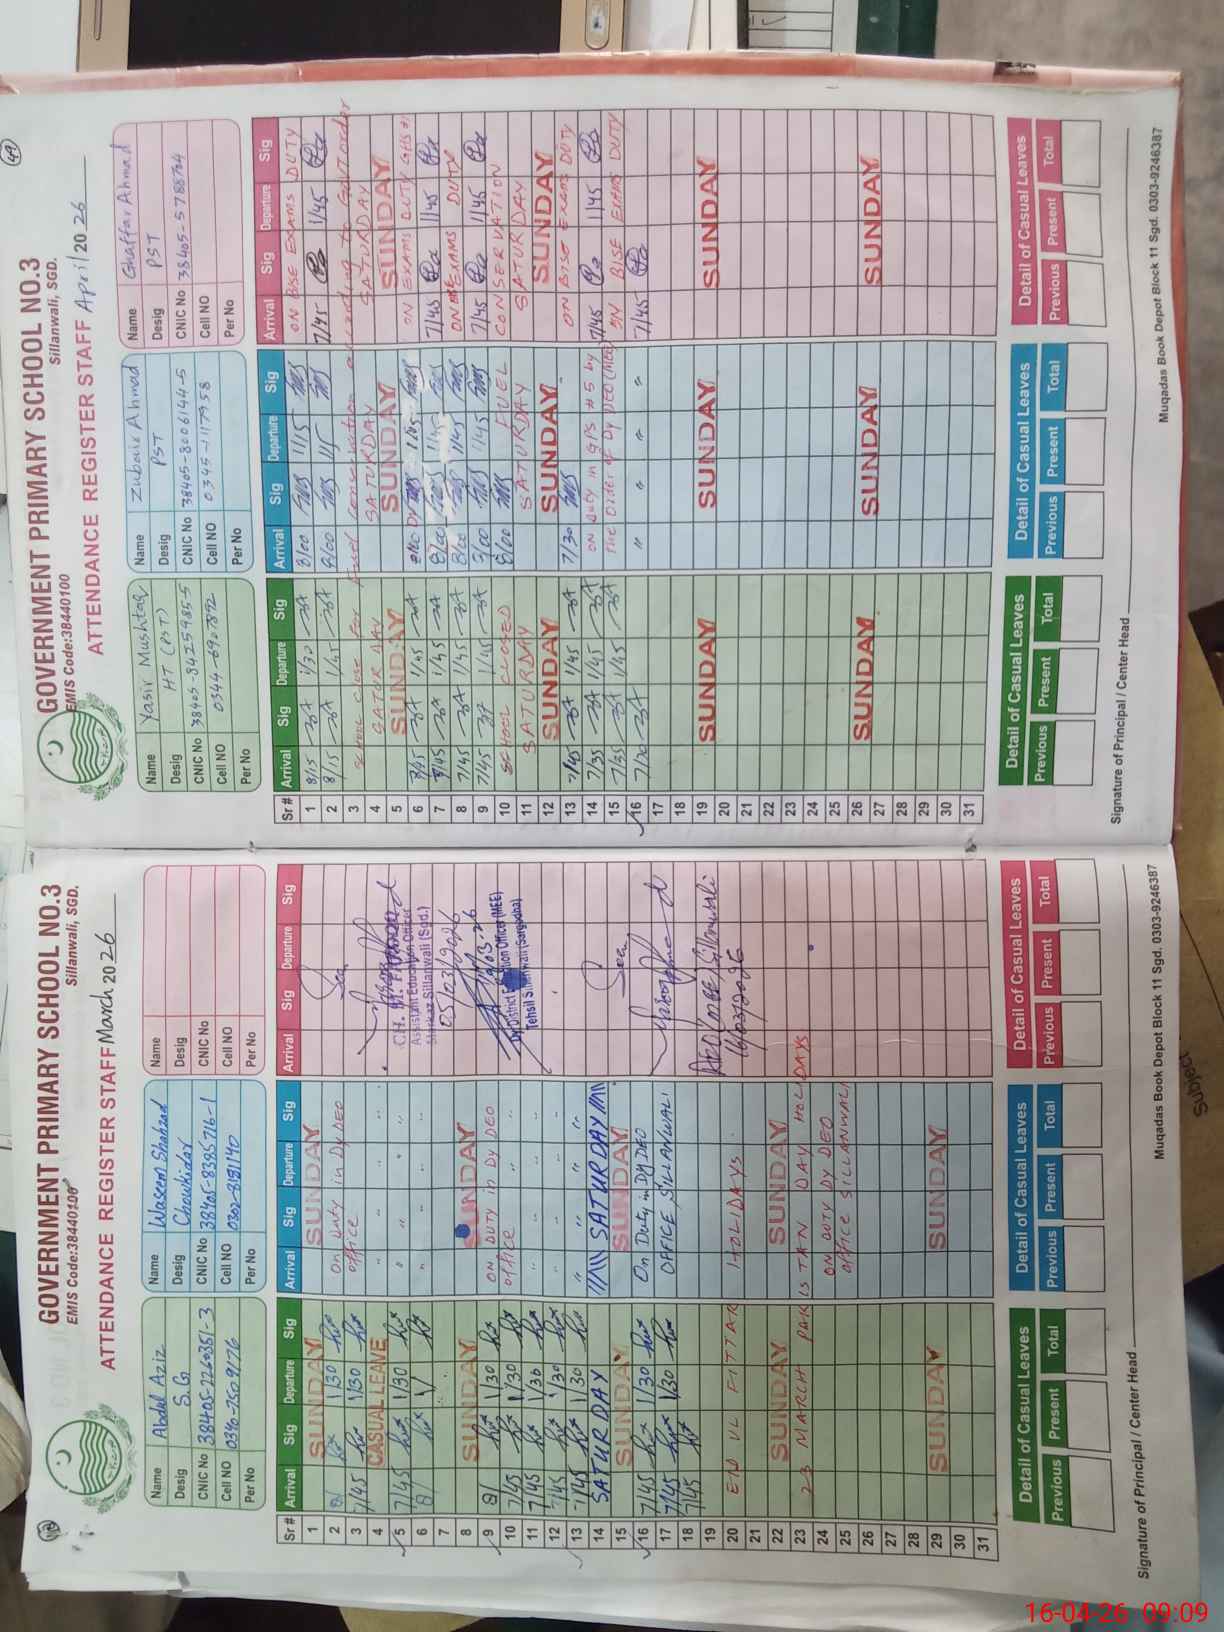 48
GOVERNMENT PRIMARY SCHOOL NO.3
EMIS Code:38440100 Sillanwali, SGD.
ATTENDANCE REGISTER STAFF March 2026
Name Abdul Aziz
Desig S.G
CNIC No 38405-2260351-3
Cell NO 0340-7509176
Per No
Name Waseem Shahzad
Desig Chowkidar
CNIC No 38405-8385716-1
Cell NO
Per No
Name
Desig
CNIC No
Cell NO
Per No
Sr# Arrival Sig Departure Sig Arrival Sig Departure Sig Arrival Sig Departure Sig
1 SUNDAY SUNDAY
2 8/ 1/30 On Duty in Dy DEO
3 7/45 1/30 office
4 CASUAL LEAVE
5 7/45 1/30
6 8/
Assistant Education Officer
Markaz Sillanwali (Sgd.)
05/03/2026
7
8 SUNDAY SUNDAY
9 8/ 1/30 ON DUTY in Dy DEO
10 7/45 1/30 office
Dy District Education Officer (MEE)
Tehsil Sillanwali (Sargodha)
11 7/45 1/30
12 7/45 1/30
13 7/45 1/30
14 SATURDAY SATURDAY
15 SUNDAY SUNDAY
16 7/45 1/30 On Duty in Dy DEO
17 7/45 1/30 OFFICE SILLANWALI
18 7/45
19
20 EID UL FITTAR HOLIDAYS
21
22 SUNDAY SUNDAY
23 23 MARCH PAKISTAN DAY HOLIDAYS
24 ON DUTY DY DEO
25 office SILLANWALI
26
27
28
29 SUNDAY SUNDAY
30
31
Detail of Casual Leaves Detail of Casual Leaves Detail of Casual Leaves
Previous Present Total Previous Present Total Previous Present Total
Signature of Principal / Center Head
Muqadas Book Depot Block 11 Sgd. 0303-9246387
49
GOVERNMENT PRIMARY SCHOOL NO.3
EMIS Code:38440100 Sillanwali, SGD.
ATTENDANCE REGISTER STAFF April 2026
Name Yasir Mushtaq
Desig HT (PST)
CNIC No 38405-8425985-5
Cell NO 0344-6907892
Per No
Name Zubair Ahmad
Desig PST
CNIC No 38405-8006144-5
Cell NO 0345-1117958
Per No
Name Ghaffar Ahmad
Desig PST
CNIC No 38405-5788704
Cell NO
Per No
Sr# Arrival Sig Departure Sig Arrival Sig Departure Sig Arrival Sig Departure Sig
1 8/15 1/30 8/00 1/15 ON BISE EXAMS DUTY
2 8/15 1/45 8/00 1/15 7/45 1/45
3 School close for Fuel conservation according to Govt order
4 SATURDAY SATURDAY SATURDAY
5 SUNDAY SUNDAY SUNDAY
6 7/45 1/45 8/00 1/45 ON EXAMS DUTY
7 7/45 1/45 8/00 1/45 7/45 1/45
8 7/45 1/45 8/00 1/45 ON EXAMS DUTY
9 7/45 1/45 8/00 1/45 7/45 1/45
10 SCHOOL CLOSED 8/00 FUEL CONSERVATION
11 SATURDAY SATURDAY SATURDAY
12 SUNDAY SUNDAY SUNDAY
13 7/45 1/45 7/30 ON BISE EXAMS DUTY
14 7/35 1/45 ON Duty in GPS #5 by 7/45 1/45
15 7/35 1/45 the order of Dy DEO (MEE) ON BISE EXAMS DUTY
16 7/30 " " " " 7/45
17
18
19 SUNDAY SUNDAY SUNDAY
20
21
22
23
24
25
26 SUNDAY SUNDAY SUNDAY
27
28
29
30
31
Detail of Casual Leaves Detail of Casual Leaves Detail of Casual Leaves
Previous Present Total Previous Present Total Previous Present Total
Signature of Principal / Center Head
Muqadas Book Depot Block 11 Sgd. 0303-9246387
Subject
16-04-26 09:09